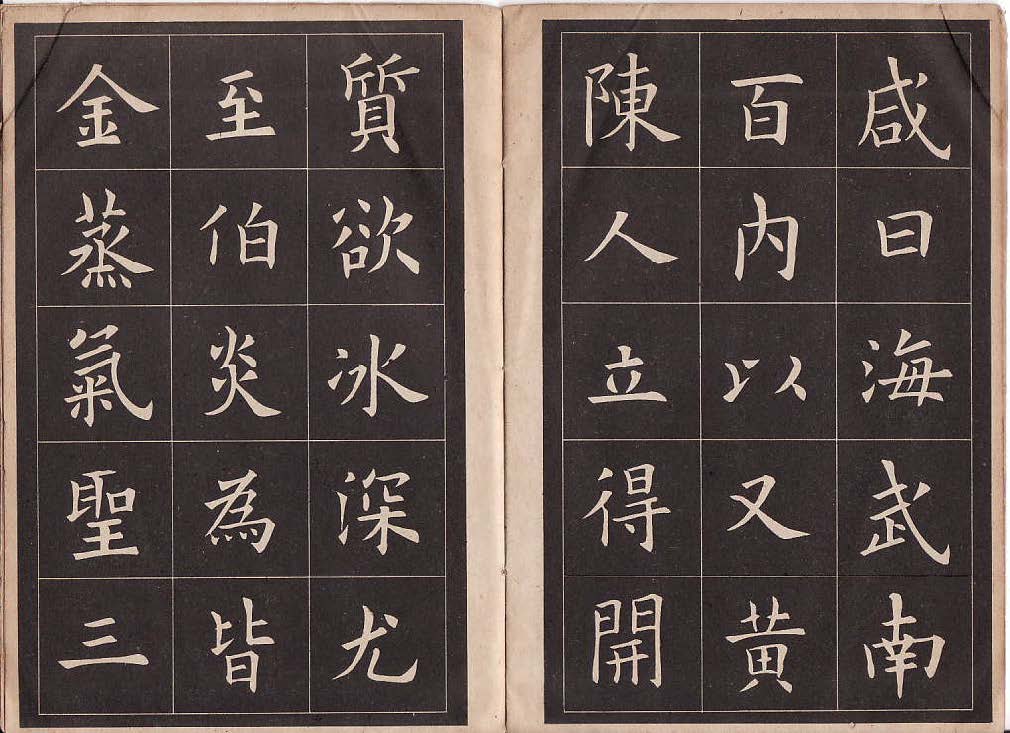 咸曰海武南
百内以又黄
陳人立得開
質欲冰深尤
至伯炎為皆
金蒸氣聖三